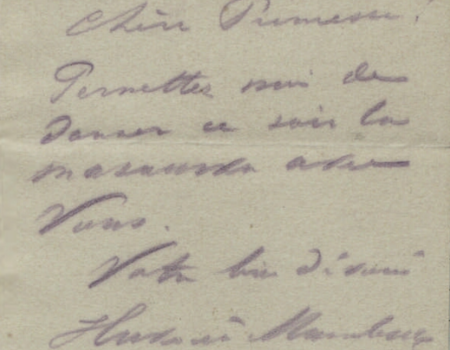 Chère Princesse!
Permettez moi de
danser ce soir la
mazourka avec
Vous.
Votre bien dévoué